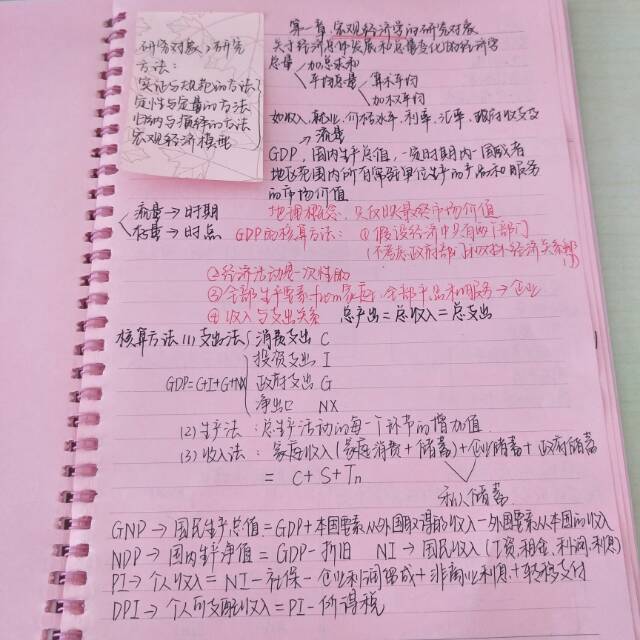 研究对象、研究
方法：
实证与规范的方法
定性与定量的方法
归纳与演绎的方法
宏观经济模型
第一章 宏观经济学的研究对象
关于经济总体发展和总量变化的经济学
总量 加总求和
平均总量 算术平均
加权平均
如收入、就业、价格水平、利率、汇率、政府收支及
流量
GDP，国内生产总值，一定时期内一国或者
地区范围内所有常驻单位生产的产品和服务
的市场价值
流量→时期
存量→时点
地理概念，只反映最终市场价值
GDP的核算方法：①假设经济中只有两个部门
(不考虑政府部门和对外经济关系部门)
②经济活动是一次性的
③全部生产要素→家庭 全部产品和服务→企业
④收入与支出关系 总产出=总收入=总支出
核算方法 (1)支出法 消费支出 C
投资支出 I
GDP=C+I+G+NX 政府支出 G
净出口 NX
(2)生产法：总生产活动的每一个环节的增加值
(3)收入法：家庭收入(家庭消费+储蓄)+企业储蓄+政府储蓄
= C+S+Tn
私人储蓄
GNP→国民生产总值=GDP+本国要素从外国取得的收入-外国要素从本国的收入
NDP→国内生产净值=GDP-折旧 NI→国民收入(工资,租金,利润,利息)
PI→个人收入=NI-社保-企业利润留成+非商业利息+转移支付
DPI→个人可支配收入=PI-所得税